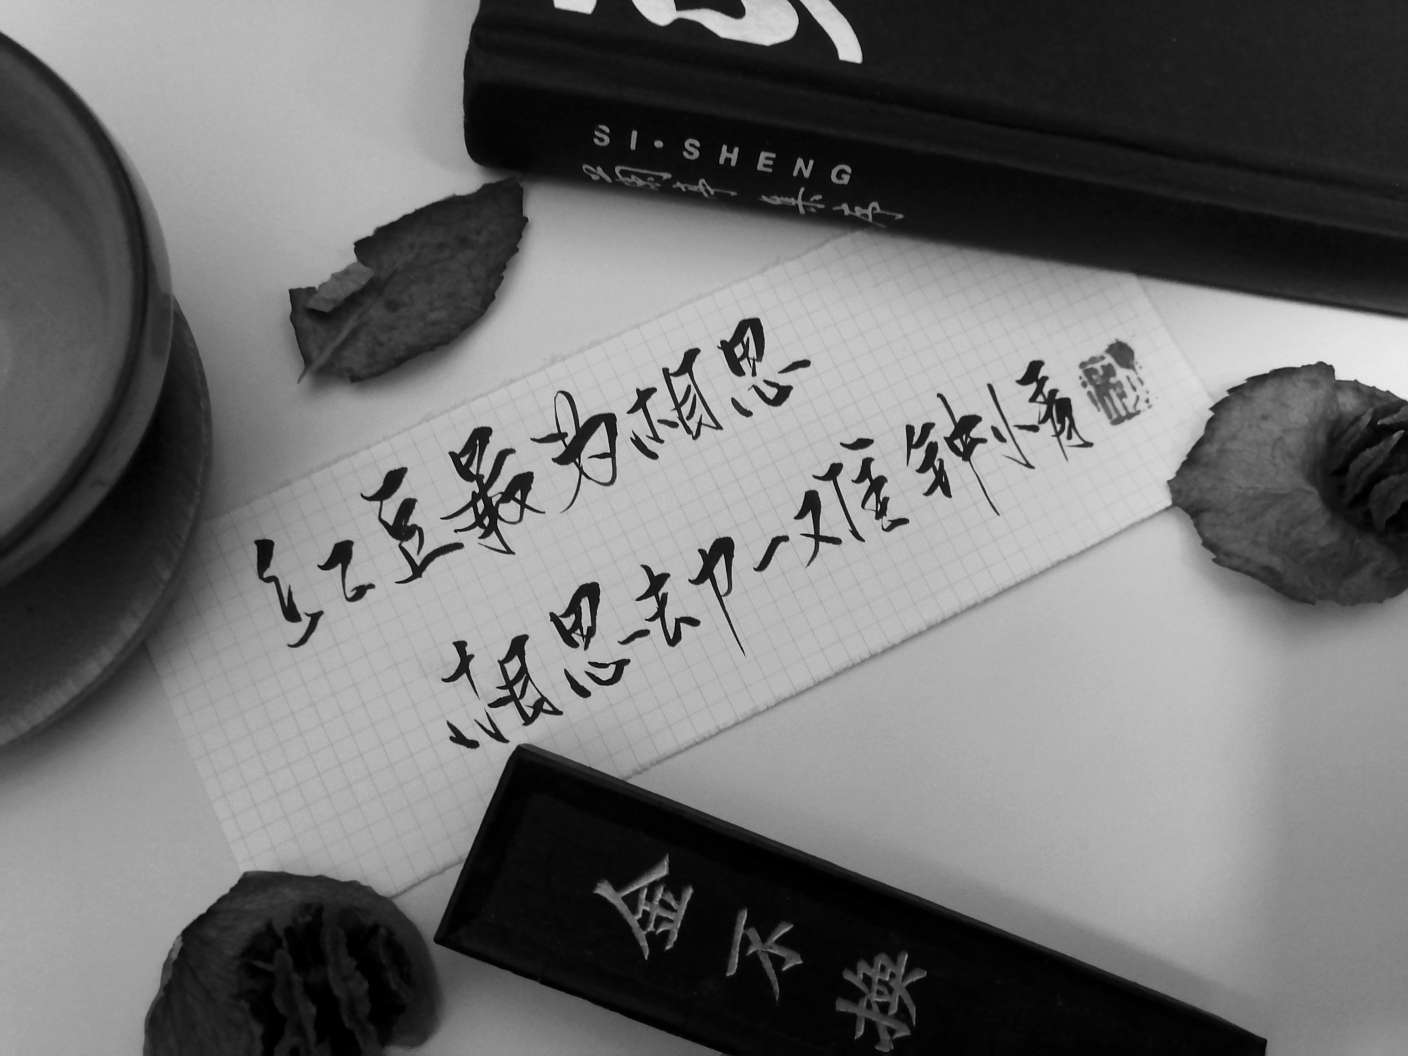 SI·SHENG
红豆最为相思
相思却一难钟情
金不换